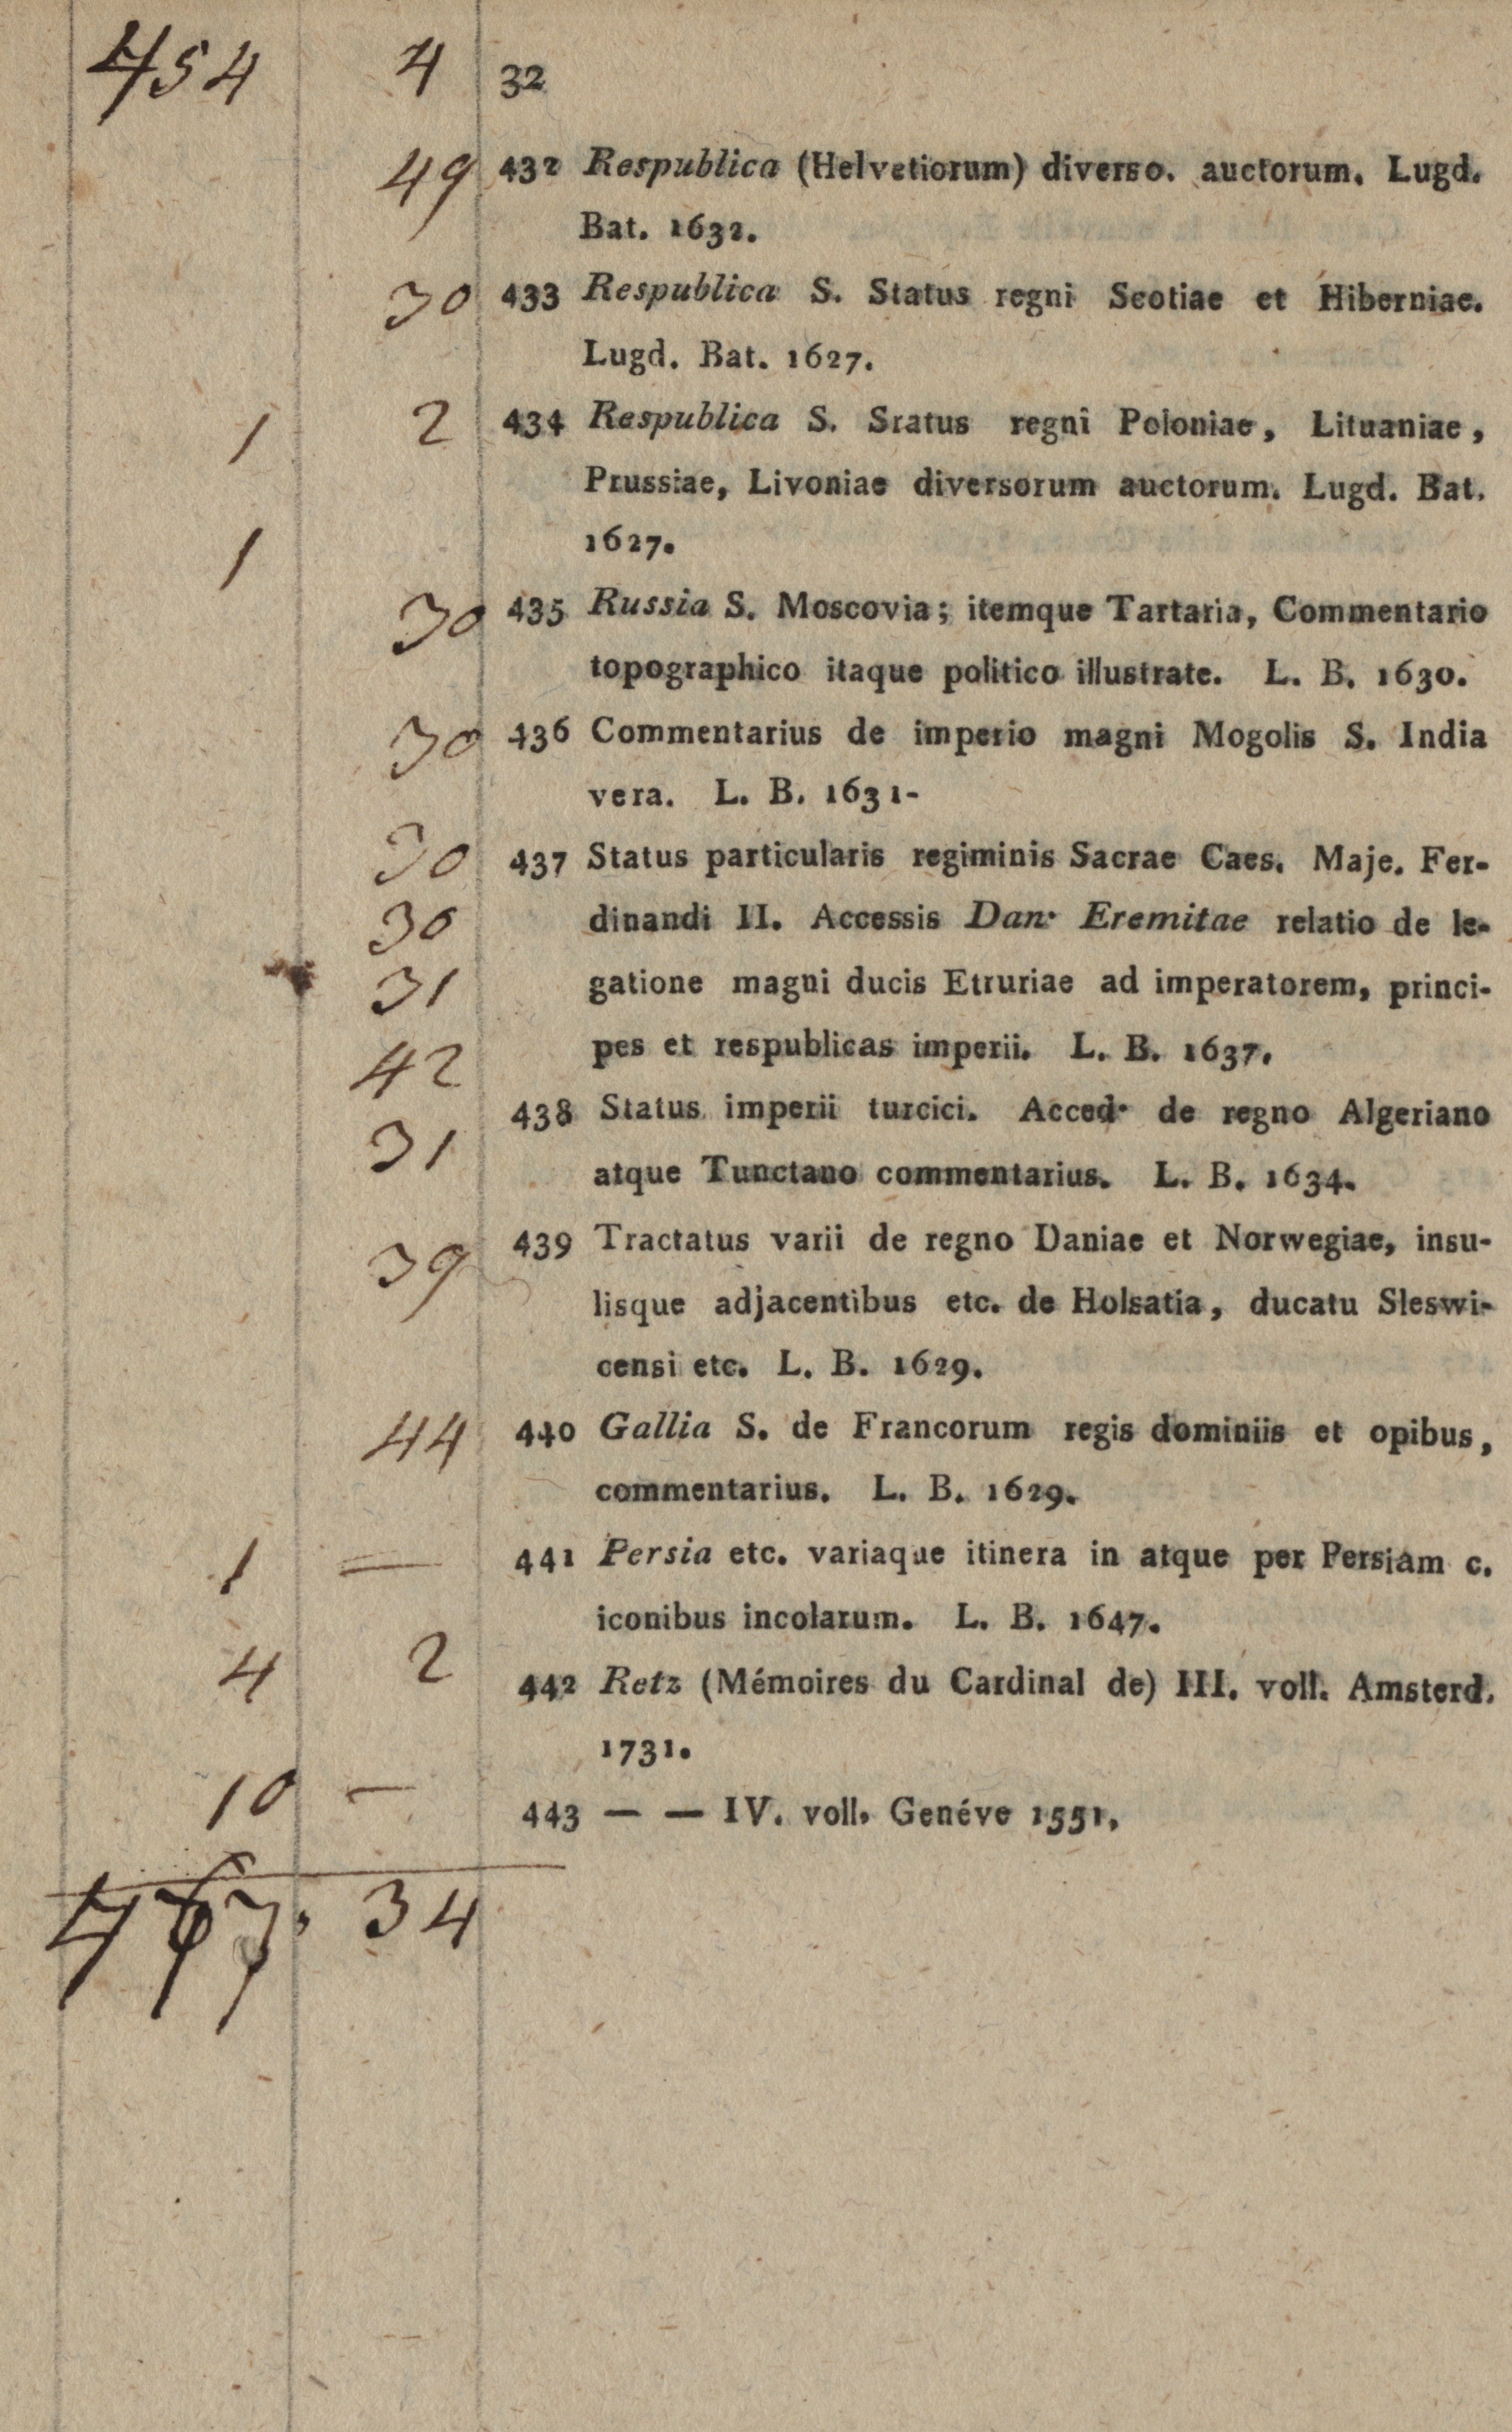 454 4 32
49 432 Respublica (Helvetiorum) diverso. auctorum. Lugd.
Bat. 1632.
30 433 Respublica S. Status regni Scotiae et Hiberniae.
Lugd. Bat. 1627.
1 2 434 Respublica S. Sratus regni Poloniae, Lituaniae,
Prussiae, Livoniae diversorum auctorum. Lugd. Bat.
1 1627.
30 435 Russia S. Moscovia; itemque Tartaria, Commentario
topographico itaque politico illustrate. L. B. 1630.
30 436 Commentarius de imperio magni Mogolis S. India
vera. L. B. 1631-
30 437 Status particularis regiminis Sacrae Caes. Maje. Fer-
30 dinandi II. Accessis Dan. Eremitae relatio de le-
31 gatione magni ducis Etruriae ad imperatorem, princi-
42 pes et respublicas imperii. L. B. 1637.
438 Status imperii turcici. Acced. de regno Algeriano
31 atque Tunctano commentarius. L. B. 1634.
39 439 Tractatus varii de regno Daniae et Norwegiae, insu-
lisque adjacentibus etc. de Holsatia, ducatu Sleswi-
censi etc. L. B. 1629.
44 440 Gallia S. de Francorum regis dominiis et opibus,
commentarius. L. B. 1629.
1 — 441 Persia etc. variaque itinera in atque per Persiam c.
iconibus incolarum. L. B. 1647.
4 2 442 Retz (Mémoires du Cardinal de) III. voll. Amsterd.
1731.
10 — 443 — — IV. voll. Genéve 1551.
34